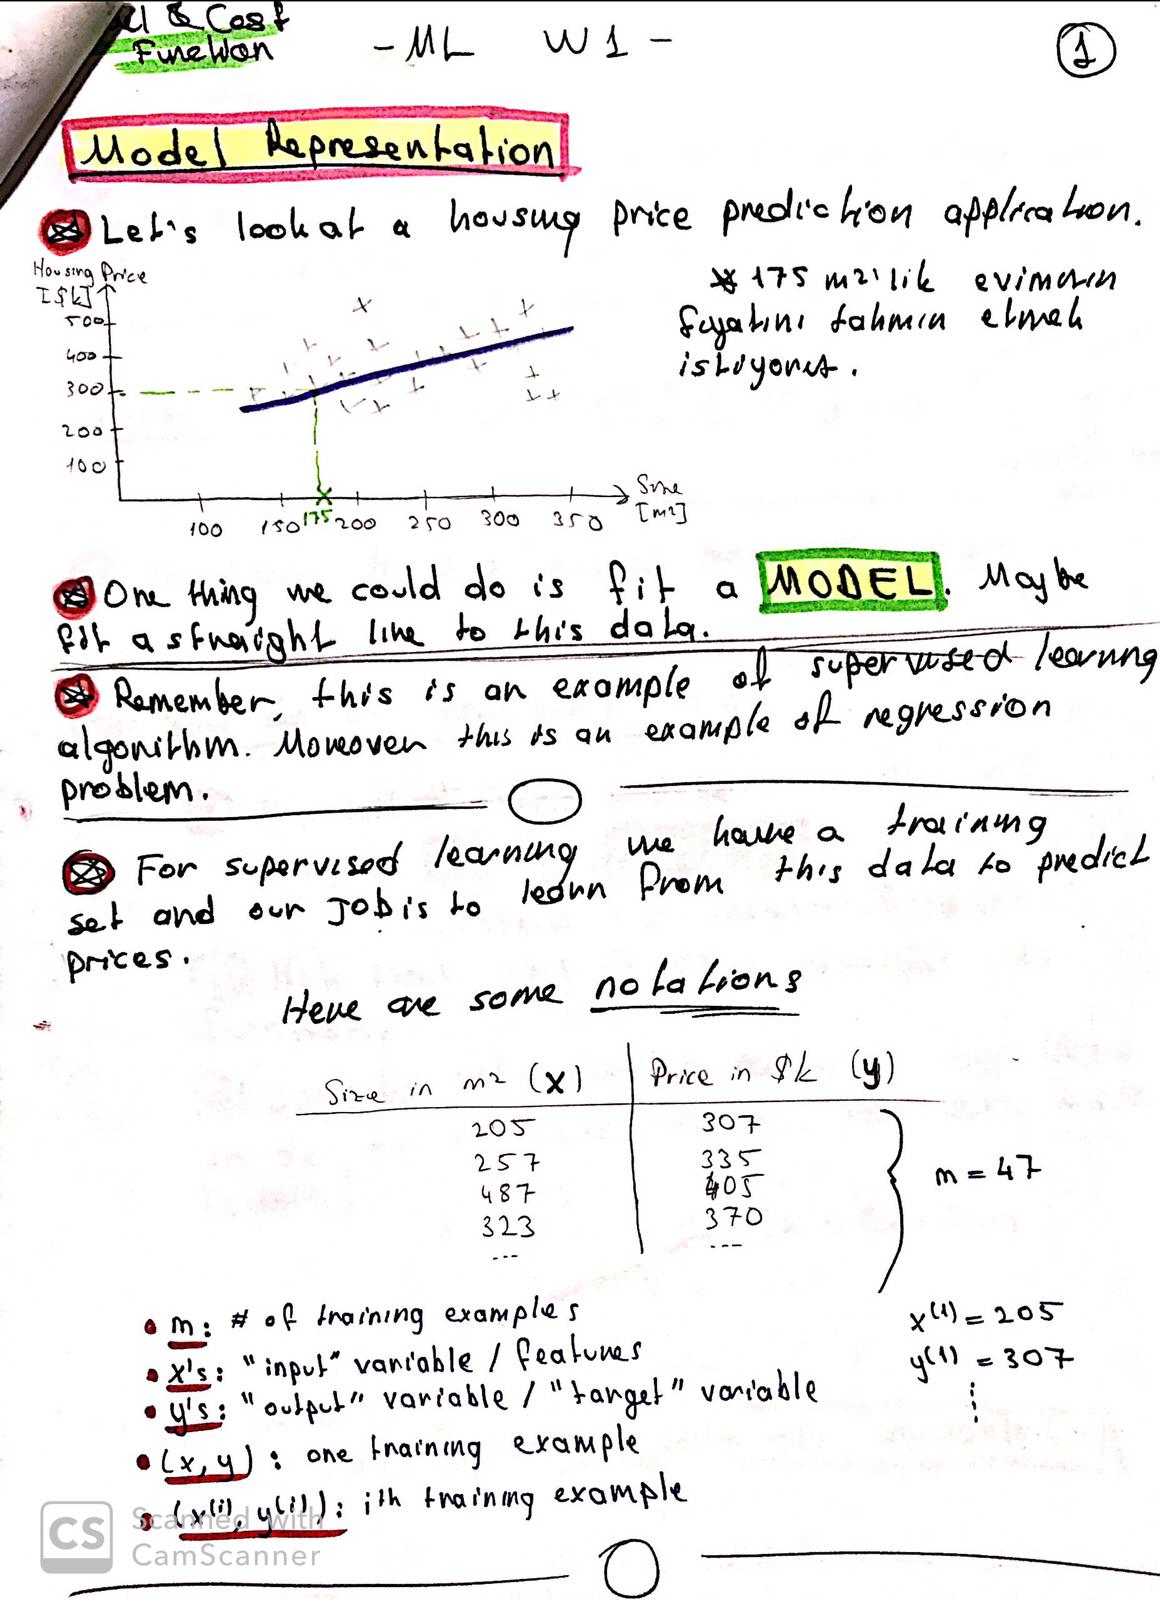 & Cost
Function
- ML W1 -
1
Model Representation
Let's look at a housing price prediction application.
Housing Price
[$k]
500
400
300
200
100
100 150 175 200 250 300 350
Size
[m²]
* 175 m²'lik evimizin
fiyatını tahmin etmek
istiyoruz.
One thing we could do is fit a MODEL. Maybe
fit a straight line to this data.
Remember, this is an example of supervised learning
algorithm. Moreover this is an example of regression
problem.
For supervised learning we have a training
set and our job is to learn from this data to predict
prices.
Here are some notations
Size in m² (x) Price in $k (y)
205 307
257 335
487 405
323 370
... ...
m = 47
• m: # of training examples
• x's: "input" variable / features
• y's: "output" variable / "target" variable
• (x, y): one training example
• (x(i), y(i)): ith training example
x(1) = 205
y(1) = 307
CS Scanned with
CamScanner